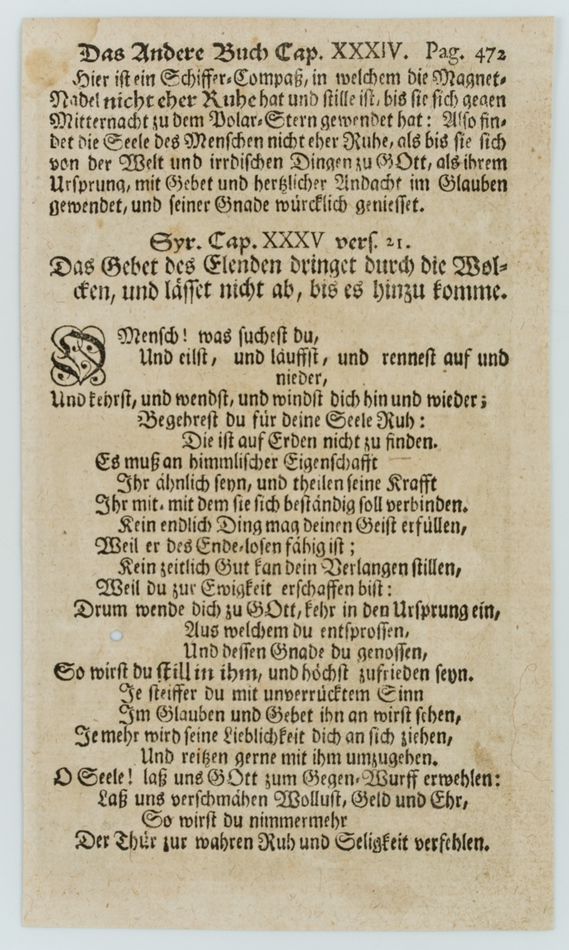 Das Andere Buch Cap. XXXIV. Pag. 472
Hier ist ein Schiffer-Compaß, in welchem die Magnet-
Nadel nicht eher Ruhe hat und stille ist, bis sie sich gegen
Mitternacht zu dem Polar-Stern gewendet hat: Also fin-
det die Seele des Menschen nicht eher Ruhe, als bis sie sich
von der Welt und irrdischen Dingen zu GOtt, als ihrem
Ursprung, mit Gebet und hertzlicher Andacht im Glauben
gewendet, und seiner Gnade würcklich geniesset.
Syr. Cap. XXXV vers. 21.
Das Gebet des Elenden dringet durch die Wol-
cken, und lässet nicht ab, bis es hinzu komme.
O Mensch! was suchest du,
Und eilst, und läuffst, und rennest auf und
nieder,
Und kehrst, und wendst, und windst dich hin und wieder;
Begehrest du für deine Seele Ruh:
Die ist auf Erden nicht zu finden.
Es muß an himmlischer Eigenschafft
Ihr ähnlich seyn, und theilen seine Krafft
Ihr mit, mit dem sie sich beständig soll verbinden.
Kein endlich Ding mag deinen Geist erfüllen,
Weil er des Ende-losen fähig ist;
Kein zeitlich Gut kan dein Verlangen stillen,
Weil du zur Ewigkeit erschaffen bist:
Drum wende dich zu GOtt, kehr in den Ursprung ein,
Aus welchem du entsprossen,
Und dessen Gnade du genossen,
So wirst du still in ihm, und höchst zufrieden seyn.
Je steiffer du mit unverrücktem Sinn
Im Glauben und Gebet ihn an wirst sehen,
Je mehr wird seine Lieblichkeit dich an sich ziehen,
Und reitzen gerne mit ihm umzugehen.
O Seele! laß uns GOtt zum Gegen-Wurff erwehlen:
Laß uns verschmähen Wollust, Geld und Ehr,
So wirst du nimmermehr
Der Thür zur wahren Ruh und Seligkeit verfehlen.